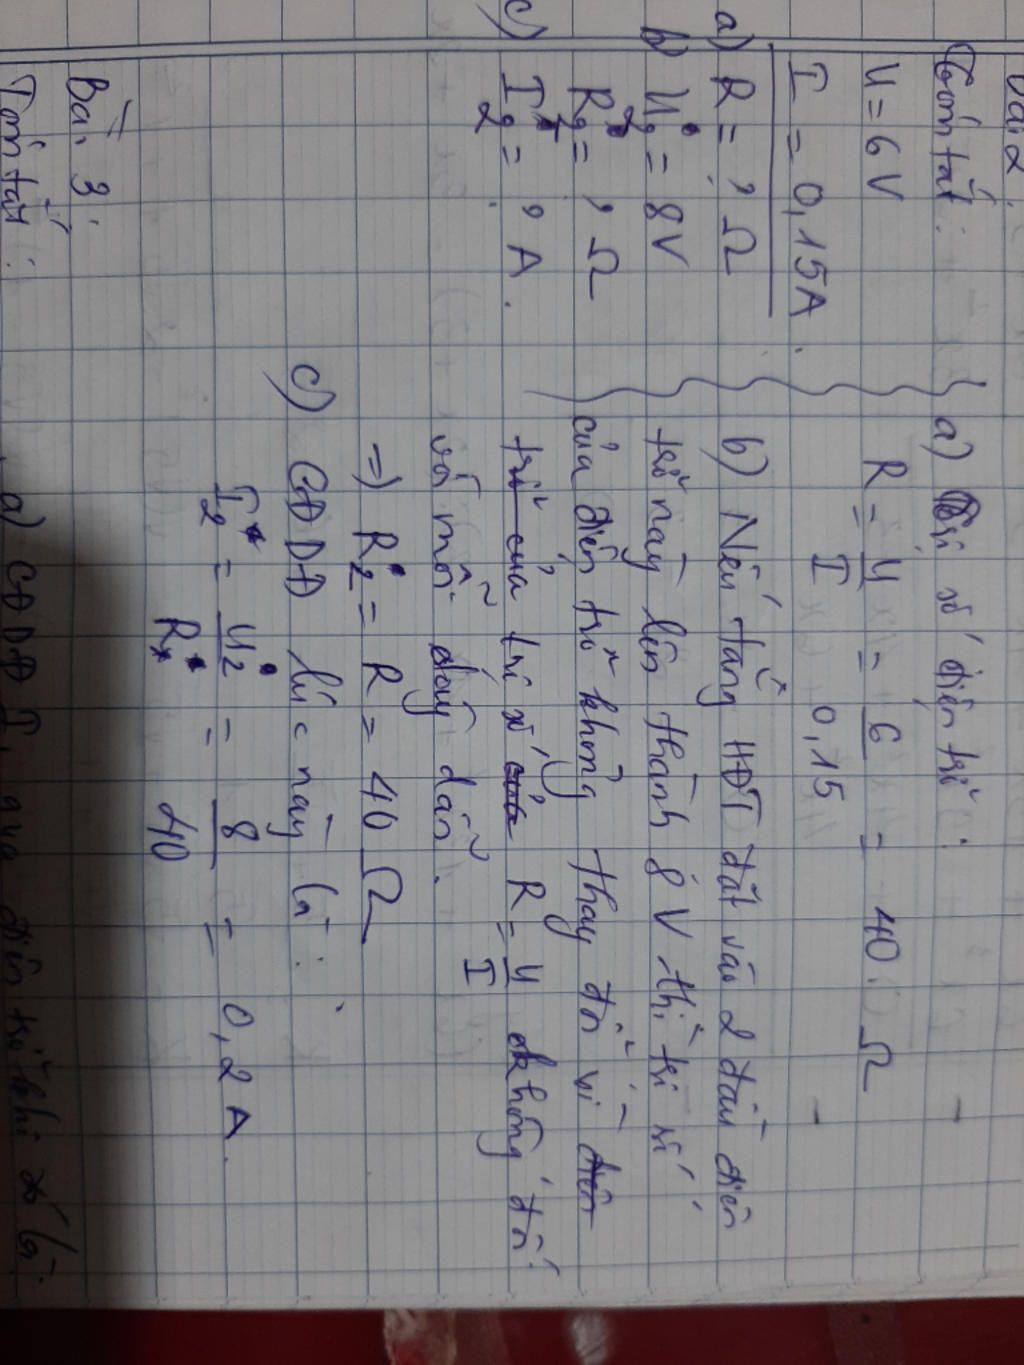 Bài 2:
Tóm tắt:
U = 6V
I = 0,15A.
a) R = ? Ω
b) U₂ = 8V
R₂ = ? Ω
c) I₂ = ? A.
a) Trị số điện trở:
R = U/I = 6/0,15 = 40 Ω
b) Nếu tăng HĐT đặt vào 2 đầu điện
trở này lên thành 8V thì trị số
của điện trở không thay đổi vì điện
trở của trị số R = U/I không đổi
với mỗi dây dẫn.
=> R₂ = R = 40 Ω
c) CĐDĐ lúc này là:
I₂ = U₂/R₂ = 8/40 = 0,2 A.
Bài 3:
Tóm tắt:
a) CĐDĐ I₁ qua điện trở khi